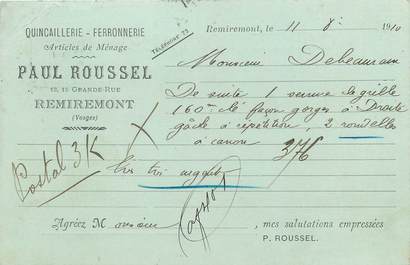 QUINCAILLERIE - FERRONNERIE
Articles de Ménage
PAUL ROUSSEL
GRANDE-RUE
REMIREMONT
(Vosges)
TÉLÉPHONE 73
Remiremont, le 11 1910
Monsieur
De suite 1 serrure de grille
160 clé gorges à Droite
gâche à répétition, 2 rondelles
à canon 376
Postal 3K
très très urgent
Agréez Monsieur , mes salutations empressées
P. ROUSSEL.